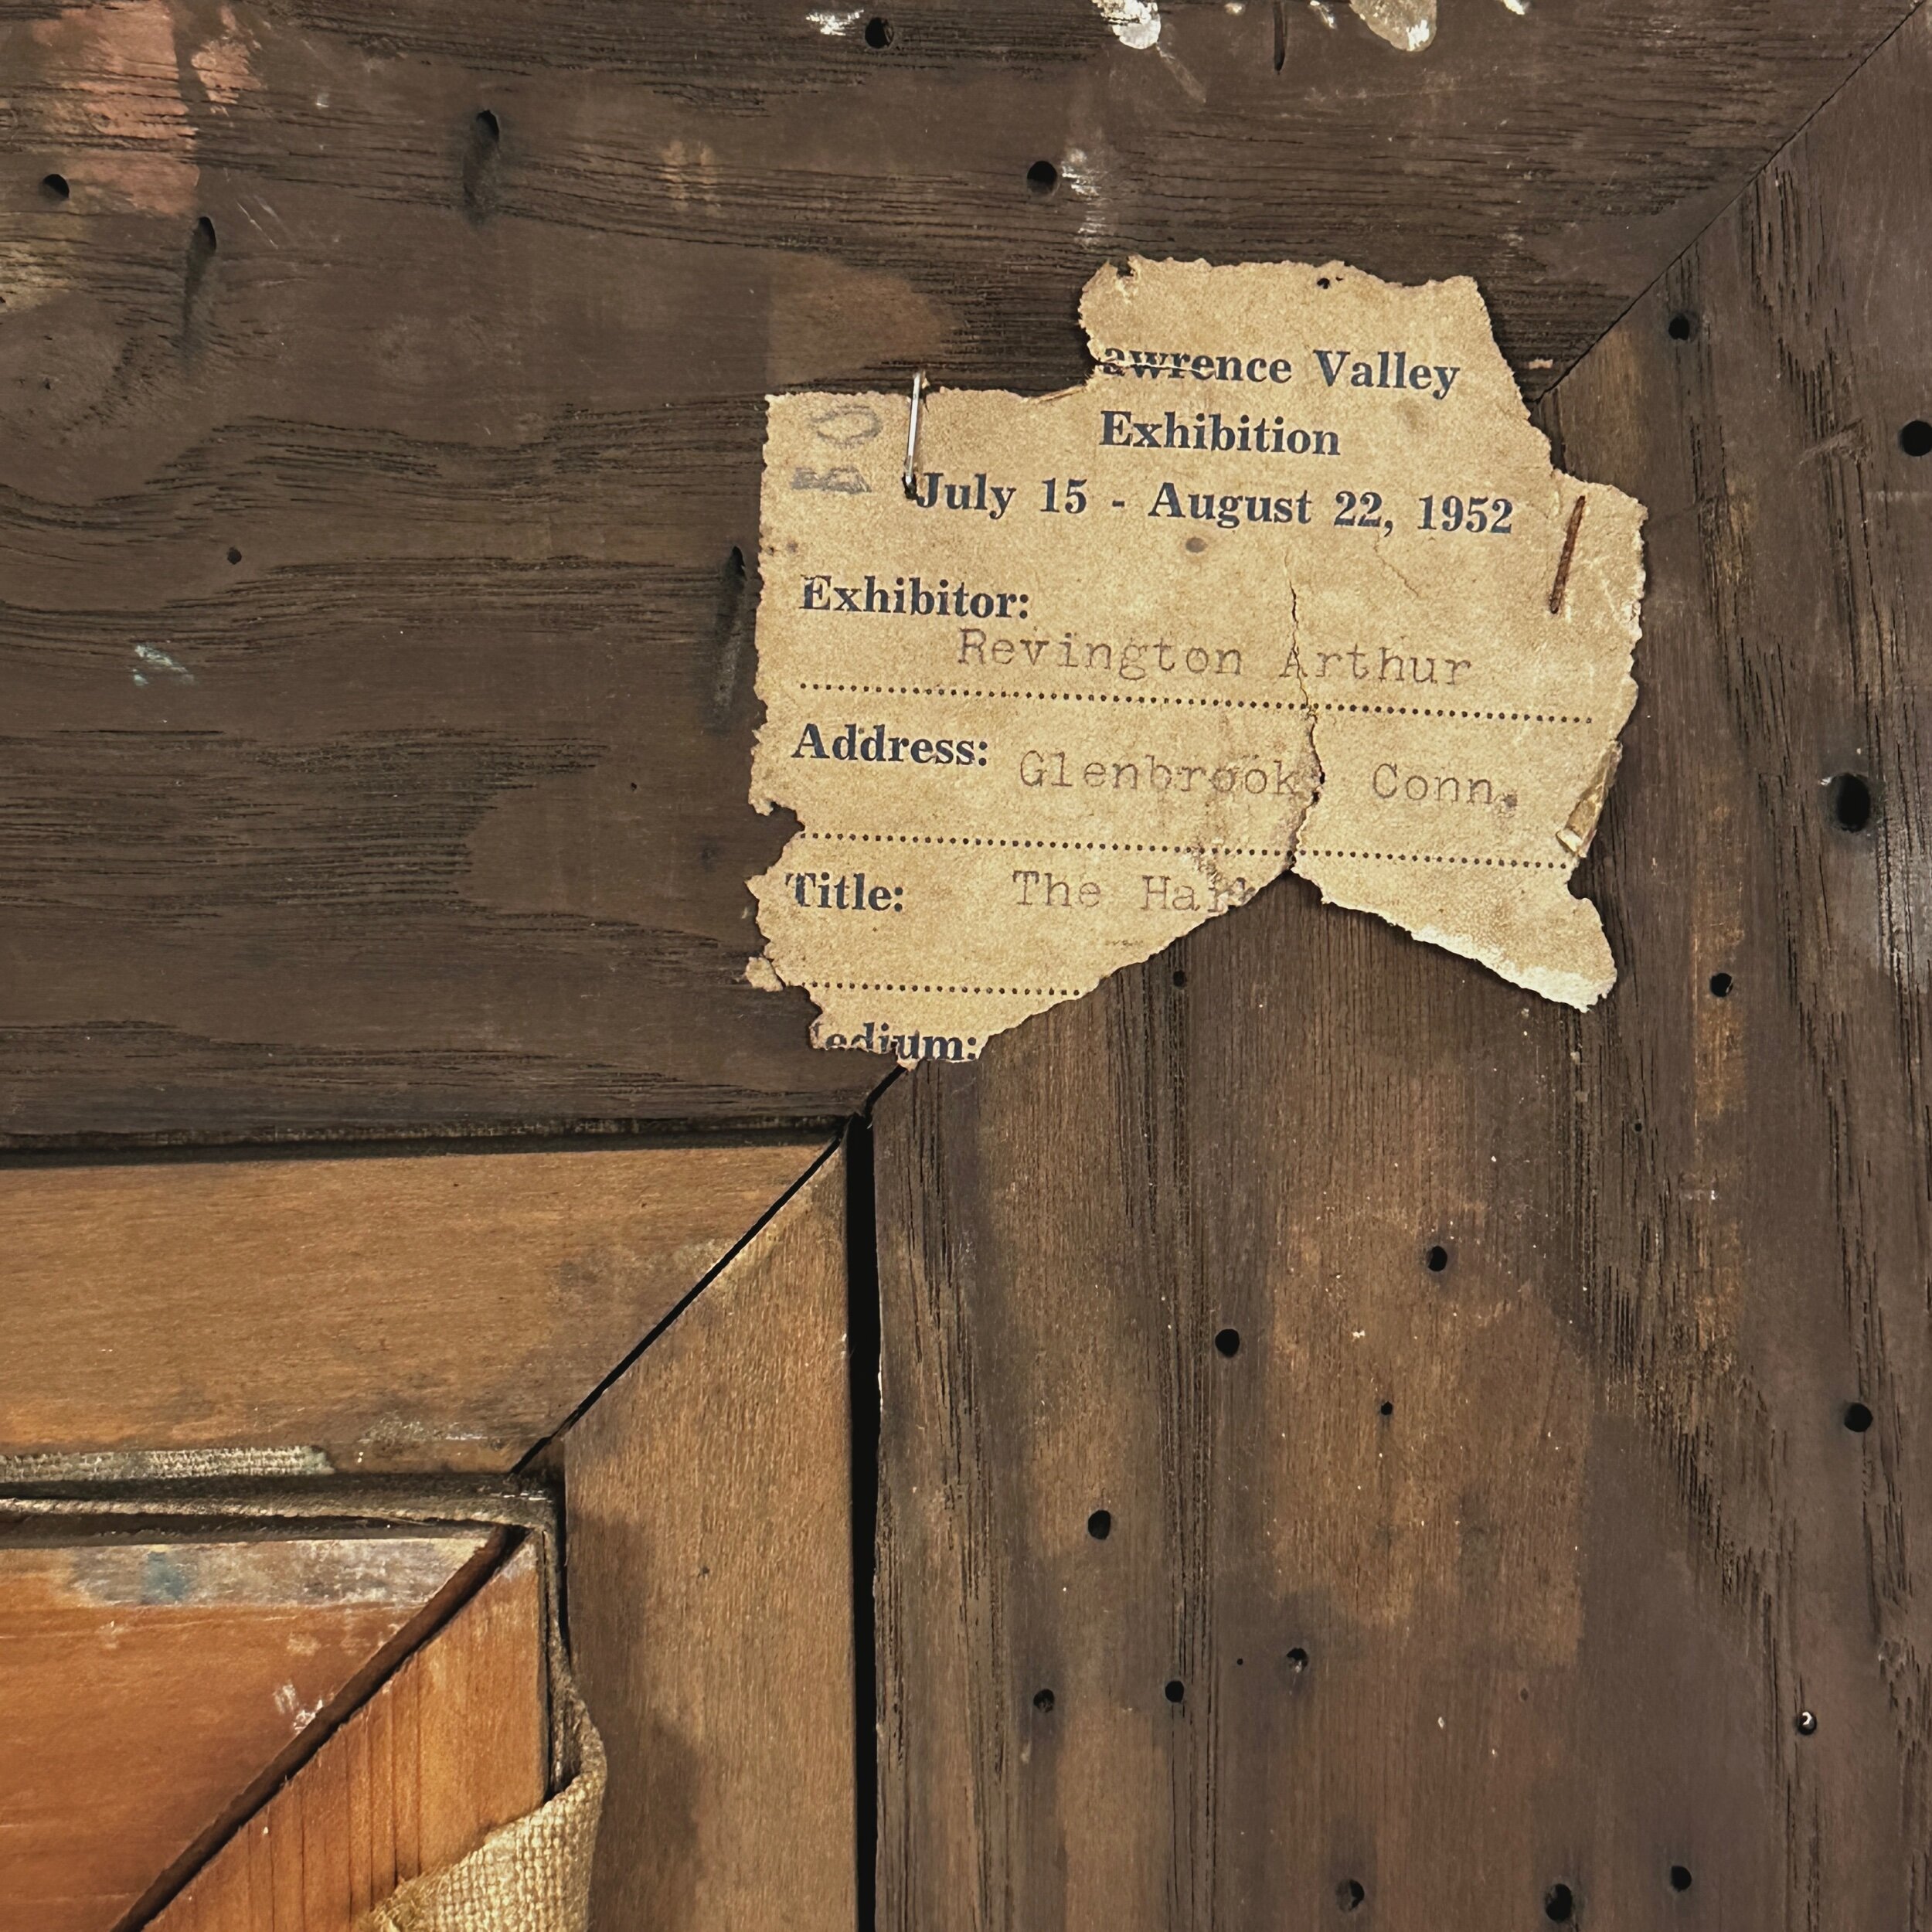 awrence Valley
Exhibition
July 15 - August 22, 1952
Exhibitor:
Revington Arthur
Address: Glenbrook, Conn.
Title: The Hai
edium: